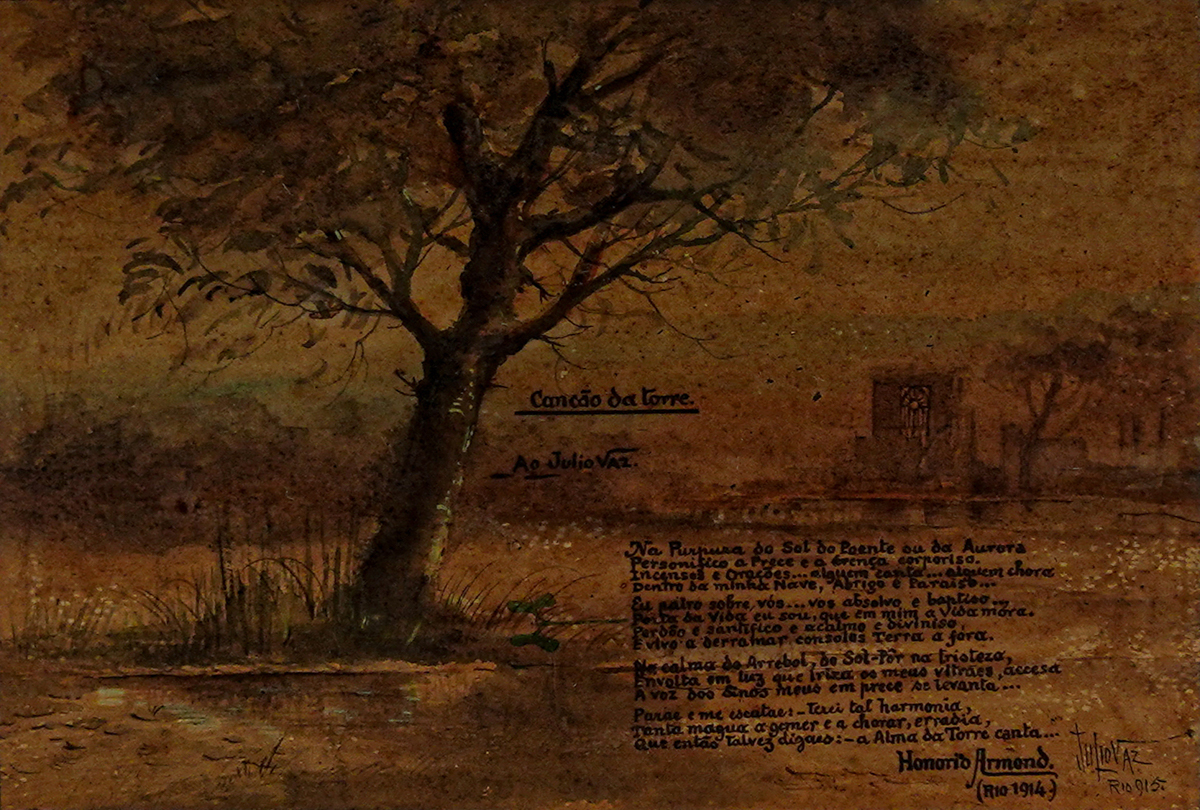 Canção da torre.
Ao Julio Vaz.
Na Purpura do Sol do Poente ou da Aurora
Personifico a Prece e a Crença corporiso.
Incensos e Orações... alguem canta... alguem chora
Dentro da minha Nave, Abrigo e Paraiso...
Eu pairo sobre vós... vos absolvo e baptiso...
Porta da Vida eu sou, que em mim a Vida móra.
Perdôo e santifico e acalmo e diviniso,
E vivo a derramar consolos Terra a fóra.
Na calma do Arrebol, do Sol-Pôr na tristeza,
Envolta em luz que iriza os meus vitráes, accesa
A voz dos Sinos meus em prece se levanta...
Parae e me escutae:- Terei tal harmonia,
Tanta mágua a gemer e a chorar, erradia,
Que então Talvez digaes:- a Alma da Torre canta...
Honorio Armond.
(Rio 1914.)
Julio Vaz
Rio 915.